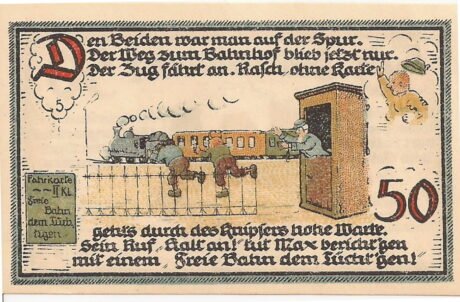 Den Beiden war man auf der Spur.
Der Weg zum Bahnhof blieb jetzt nur.
Der Zug fährt an. Rasch, ohne Karte
5
Fahrkarte
II Kl.
Freie
Bahn
dem Tüch-
tigen
50
geht's durch des Knipsers hohe Warte.
Sein Ruf „Halt an!" tut Max bericht'gen
mit einem „Freie Bahn dem Tücht'gen!"